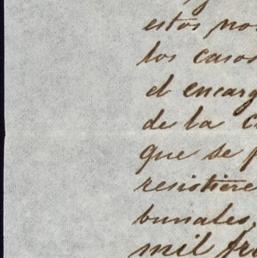 estos no
los casos
el encarg
de la c
que se p
resistiere
bunales,
mil fra